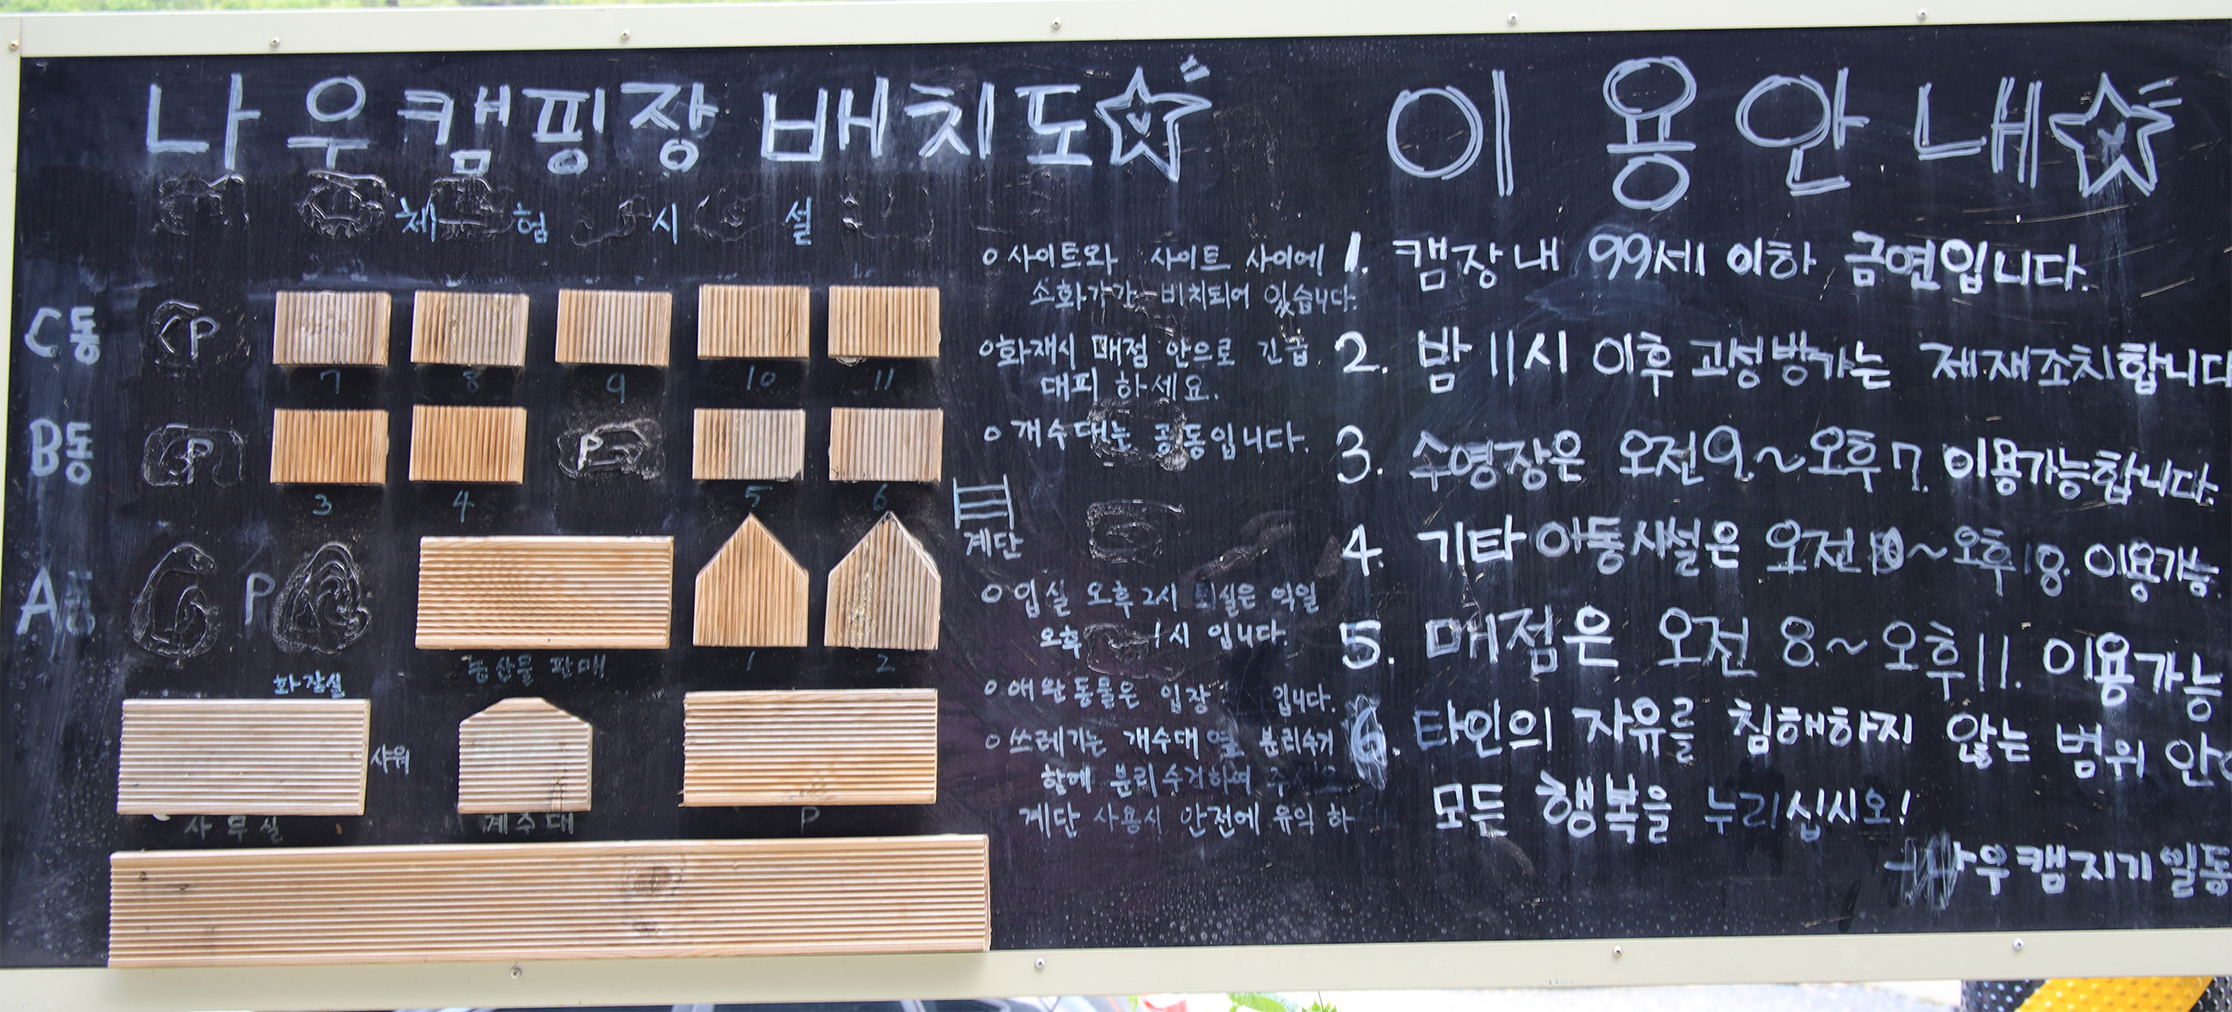 나우캠핑장 배치도
체 험 시 설
C동 P
7 8 9 10 11
B동 P P
3 4 5 6
계단
A동 P
농산물 판매 1 2
화장실
샤워
사무실 계수대 P
o 사이트와 사이트 사이에
소화기가 비치되어 있습니다.
o 화재시 매점 안으로 긴급
대피 하세요.
o 개수대는 공동입니다.
o 입실 오후 2시 퇴실은 익일
오후 1시 입니다.
o 애완동물은 입장 입니다.
o 쓰레기는 개수대 옆 분리수거
함에 분리수거하여 주십시오
계단 사용시 안전에 유의 하
이용안내
1. 캠장내 99세 이하 금연입니다.
2. 밤 11시 이후 고성방가는 제재조치합니다
3. 수영장은 오전9.~오후7. 이용가능합니다.
4. 기타 아동시설은 오전10~오후 8. 이용가능.
5. 매점은 오전 8.~오후11. 이용가능
6. 타인의 자유를 침해하지 않는 범위 안
모든 행복을 누리십시오!
나우캠지기 일동